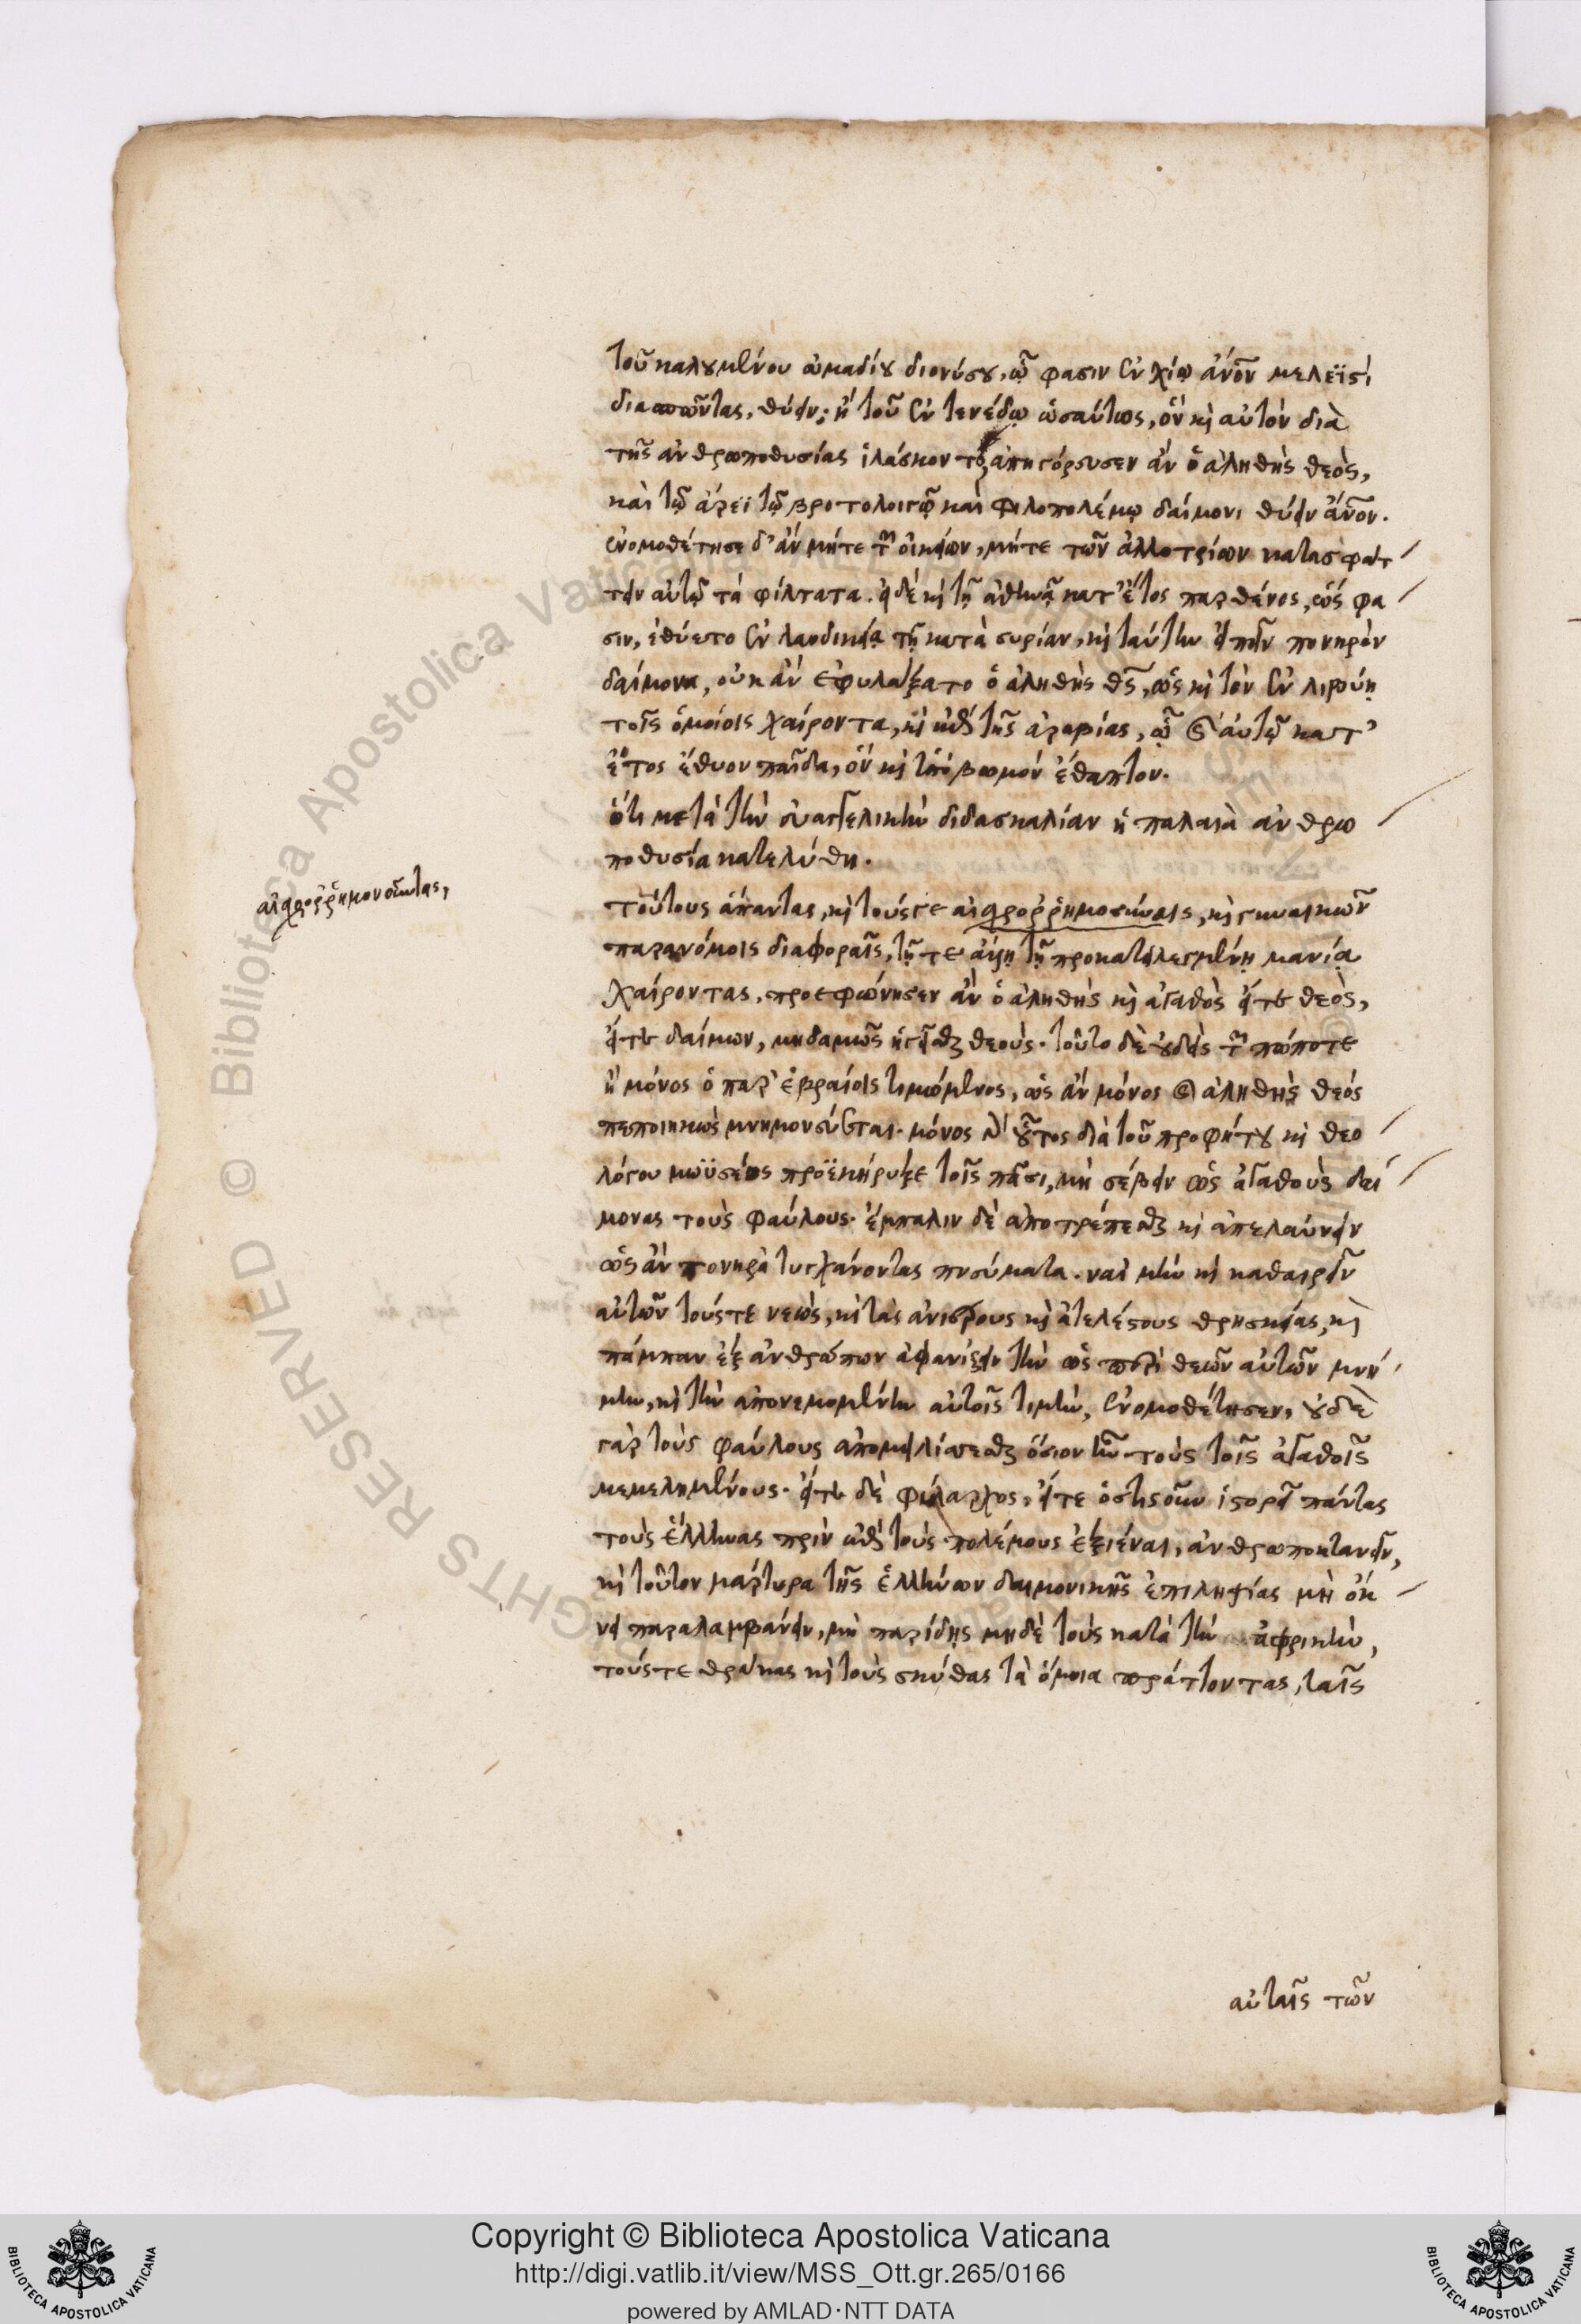 τοῦ καλουμένου ὠμαδίου διονύσου, ᾧ φασιν ἐν χίῳ ἄνον μελεϊστὶ
διασπῶντας, θύειν; ἢ τοῦ ἐν τενέδῳ ὡσαύτως, ὃν καὶ αὐτὸν διὰ
τῆς ἀνθρωποθυσίας ἱλάσκοντο, ἀπηγόρευσεν ἂν ὁ ἀληθὴς θεὸς,
καὶ τῷ ἄρεϊ τῷ βροτολοιγῷ καὶ φιλοπολέμῳ δαίμονι θύειν ἄνον.
ἐνομοθέτησε δ' ἂν μήτε τῶν οἰκείων, μήτε τῶν ἀλλοτρίων κατασφάτ
τειν αὐτῷ τὰ φίλτατα. εἰ δὲ καὶ τῇ ἀθηνᾷ κατ' ἔτος παρθένος, ὥς φα
σιν, ἐθύετο ἐν λαοδικείᾳ τῇ κατὰ συρίαν, καὶ ταύτην εἰπεῖν πονηρὸν
δαίμονα, οὐκ ἂν ἐφυλάξατο ὁ ἀληθὴς θς, ὡς καὶ τὸν ἐν λιβύῃ
τοῖς ὁμοίοις χαίροντα, καὶ ἐπὶ τῆς ἀραβίας, ᾧ καὶ αὐτῷ κατ'
ἔτος ἔθυον παῖδα, ὃν καὶ ὑπὸ βωμὸν ἔθαπτον.
ὅτι μετὰ τὴν εὐαγγελικὴν διδασκαλίαν ἡ παλαιὰ ἀνθρω
ποθυσία κατελύθη.
τούτους ἅπαντας, καὶ τούς γε αἰσχρορρημοσύναις, καὶ γυναικῶν
παρανόμοις διαφοραῖς, τῇ τε ἄλλῃ τῇ προκατειλεγμένῃ μανίᾳ
χαίροντας, προεφώνησεν ἂν ὁ ἀληθὴς καὶ ἀγαθὸς εἴτε θεὸς,
εἴτε δαίμων, μηδαμῶς ἡγεῖσθαι θεούς. τοῦτο δὲ οὐδεὶς τῶν πώποτε
ἢ μόνος ὁ παρ' ἑβραίοις τιμώμενος, ὡς ἂν μόνος ὢν ἀληθὴς θεὸς
πεποιηκὼς μνημονεύεται. μόνος δ' οὗτος διὰ τοῦ προφήτου καὶ θεο
λόγου μωϋσέως προϋκήρυξε τοῖς πᾶσι, μὴ σέβειν ὡς ἀγαθοὺς δαί
μονας τοὺς φαύλους. ἔμπαλιν δὲ ἀποτρέπεσθαι καὶ ἀπελαύνειν
ὡς ἂν πονηρὰ τυγχάνοντας πνεύματα. ναὶ μὴν καὶ καθαιρεῖν
αὐτῶν τούς τε νεὼς, καὶ τὰς ἀνιέρους καὶ ἀτελέστους θρησκείας, καὶ
πάμπαν ἐξ ἀνθρώπων ἀφανίζειν τὴν ὡς περὶ θεῶν αὐτῶν μνή
μην, καὶ τὴν ἀπονεμομένην αὐτοῖς τιμὴν, ἐνομοθέτησεν, οὐδὲ
γὰρ τοὺς φαύλους ἀπομειλίττεσθαι ὅσιον ἦν τοὺς τοῖς ἀγαθοῖς
μεμελημένους. εἴτε δὲ φύλαρχος, εἴτε ὅστις οὖν ἱστορεῖ πάντας
τοὺς ἕλληνας πρὶν ἐπὶ τοὺς πολέμους ἐξιέναι, ἀνθρωποκτονεῖν,
καὶ τοῦτον μάρτυρα τῆς ἑλλήνων δαιμονικῆς ἐπιληψίας μὴ ὄκ
νει παραλαμβάνειν, μὴ παρίδῃς μηδὲ τοὺς κατὰ τὴν ἀφρικὴν,
τούς τε θρᾷκας καὶ τοὺς σκύθας τὰ ὅμοια πράττοντας, ταῖς
αὐταῖς τῶν
αἰσχρορρημονοῦντας,
Copyright © Biblioteca Apostolica Vaticana
http://digi.vatlib.it/view/MSS_Ott.gr.265/0166
powered by AMLAD·NTT DATA
BIBLIOTECA APOSTOLICA VATICANA
BIBLIOTECA APOSTOLICA VATICANA